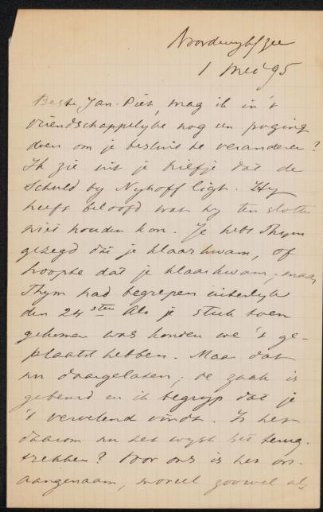 Noordwijk/zee
1 Mei 95
Beste Jan-Piet, mag ik in 't
vriendschappelijke nog un poging
doen om je besluit te veranderen?
Ik zie uit je briefje dat de
Schuld by Nyhoff ligt. Hy
heeft beloofd wat hy ten slotte
niet houden kon. Je hebt Thym
gezegd dat je klaar kwam, of
hoopte dat je klaar kwam, maar
Thym had begrepen uiterlyk
den 24sten Als je stuk toen
gekomen was konden we 't ge-
plaatst hebben. Maar dat
nu daargelaten, de zaak is
gebeurd en ik begryp dat je
't vervelend vindt. Is het
daarom nu het wyst het terug
trekken? Voor ons is het on-
aangenaam, moreel zoowel als